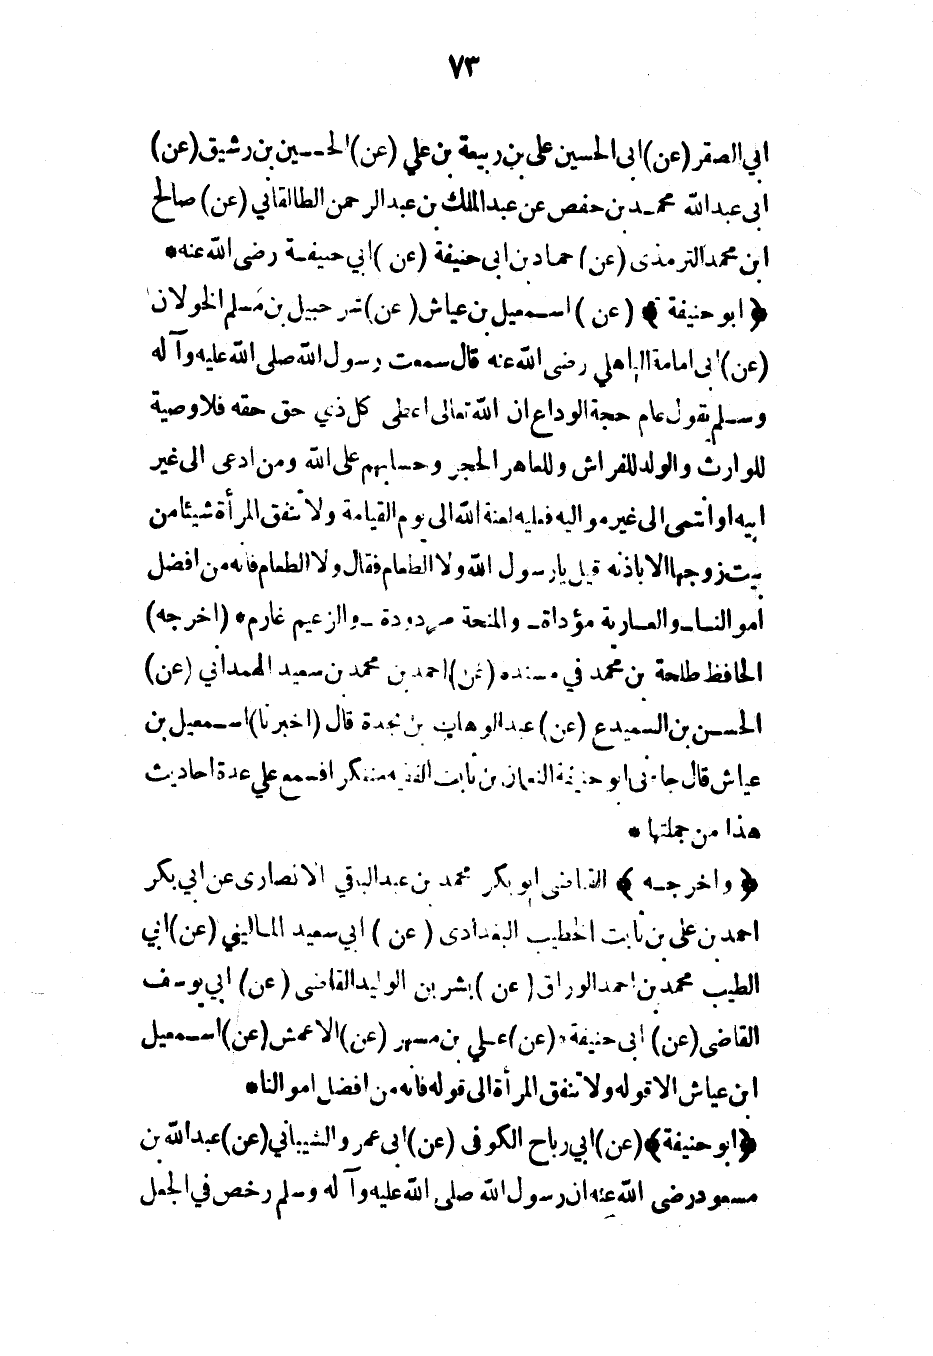 ٧٣
ابي الصقر (عن) ابى الحسين على بن ربيعة بن علي (عن) الحسين بن رشيق (عن)
ابى عبد الله محمد بن حفص عن عبد الملك بن عبد الرحمن الطالقاني (عن) صالح
ابن محمد الترمذى (عن) حماد بن ابى حنيفة (عن) ابي حنيفة رضى الله عنه *
﴿ ابو حنيفة ﴾ (عن) اسمعيل بن عياش (عن) شرحبيل بن مسلم الخولانى
(عن) ابى امامة الباهلي رضى الله عنه قال سمعت رسول الله صلى الله عليه وآله
وسلم يقول عام حجة الوداع ان الله تعالى اعطى كل ذي حق حقه فلا وصية
للوارث والولد للفراش وللعاهر الحجر وحسابهم على الله ومن ادعى الى غير
ابيه او انتمى الى غير مواليه فعليه لعنة الله الى يوم القيامة ولا تنفق المرأة شيئا من
بيت زوجها الا باذنه قيل يا رسول الله ولا الطعام فقال ولا الطعام فانه من افضل
اموالنا والعارية مؤداة والمنحة مردودة والزعيم غارم * (اخرجه)
الحافظ طلحة بن محمد في مسنده (عن) احمد بن محمد بن سعيد الهمداني (عن)
الحسن بن السميدع (عن) عبد الوهاب بن نجدة قال (اخبرنا) اسمعيل بن
عياش قال جاءنى ابو حنيفة النعمان بن ثابت الفقيه متنكرا فسمع علي عدة احاديث
هذا من جملتها *
﴿ واخرجه ﴾ القاضى ابو بكر محمد بن عبد الباقي الانصارى عن ابي بكر
احمد بن على بن ثابت الخطيب البغدادى (عن) ابي سعيد الماليني (عن) ابي
الطيب محمد بن احمد الوراق (عن) بشر بن الوليد القاضى (عن) ابي يوسف
القاضى (عن) ابى حنيفة (عن) علي بن مسهر (عن) الاعمش (عن) اسمعيل
ابن عياش الا قوله ولا تنفق المرأة الى قوله فانه من افضل اموالنا *
﴿ابو حنيفة﴾ (عن) ابي رباح الكوفى (عن) ابى عمرو الشيباني (عن) عبد الله بن
مسعود رضى الله عنه ان رسول الله صلى الله عليه وآله وسلم رخص في الجعل